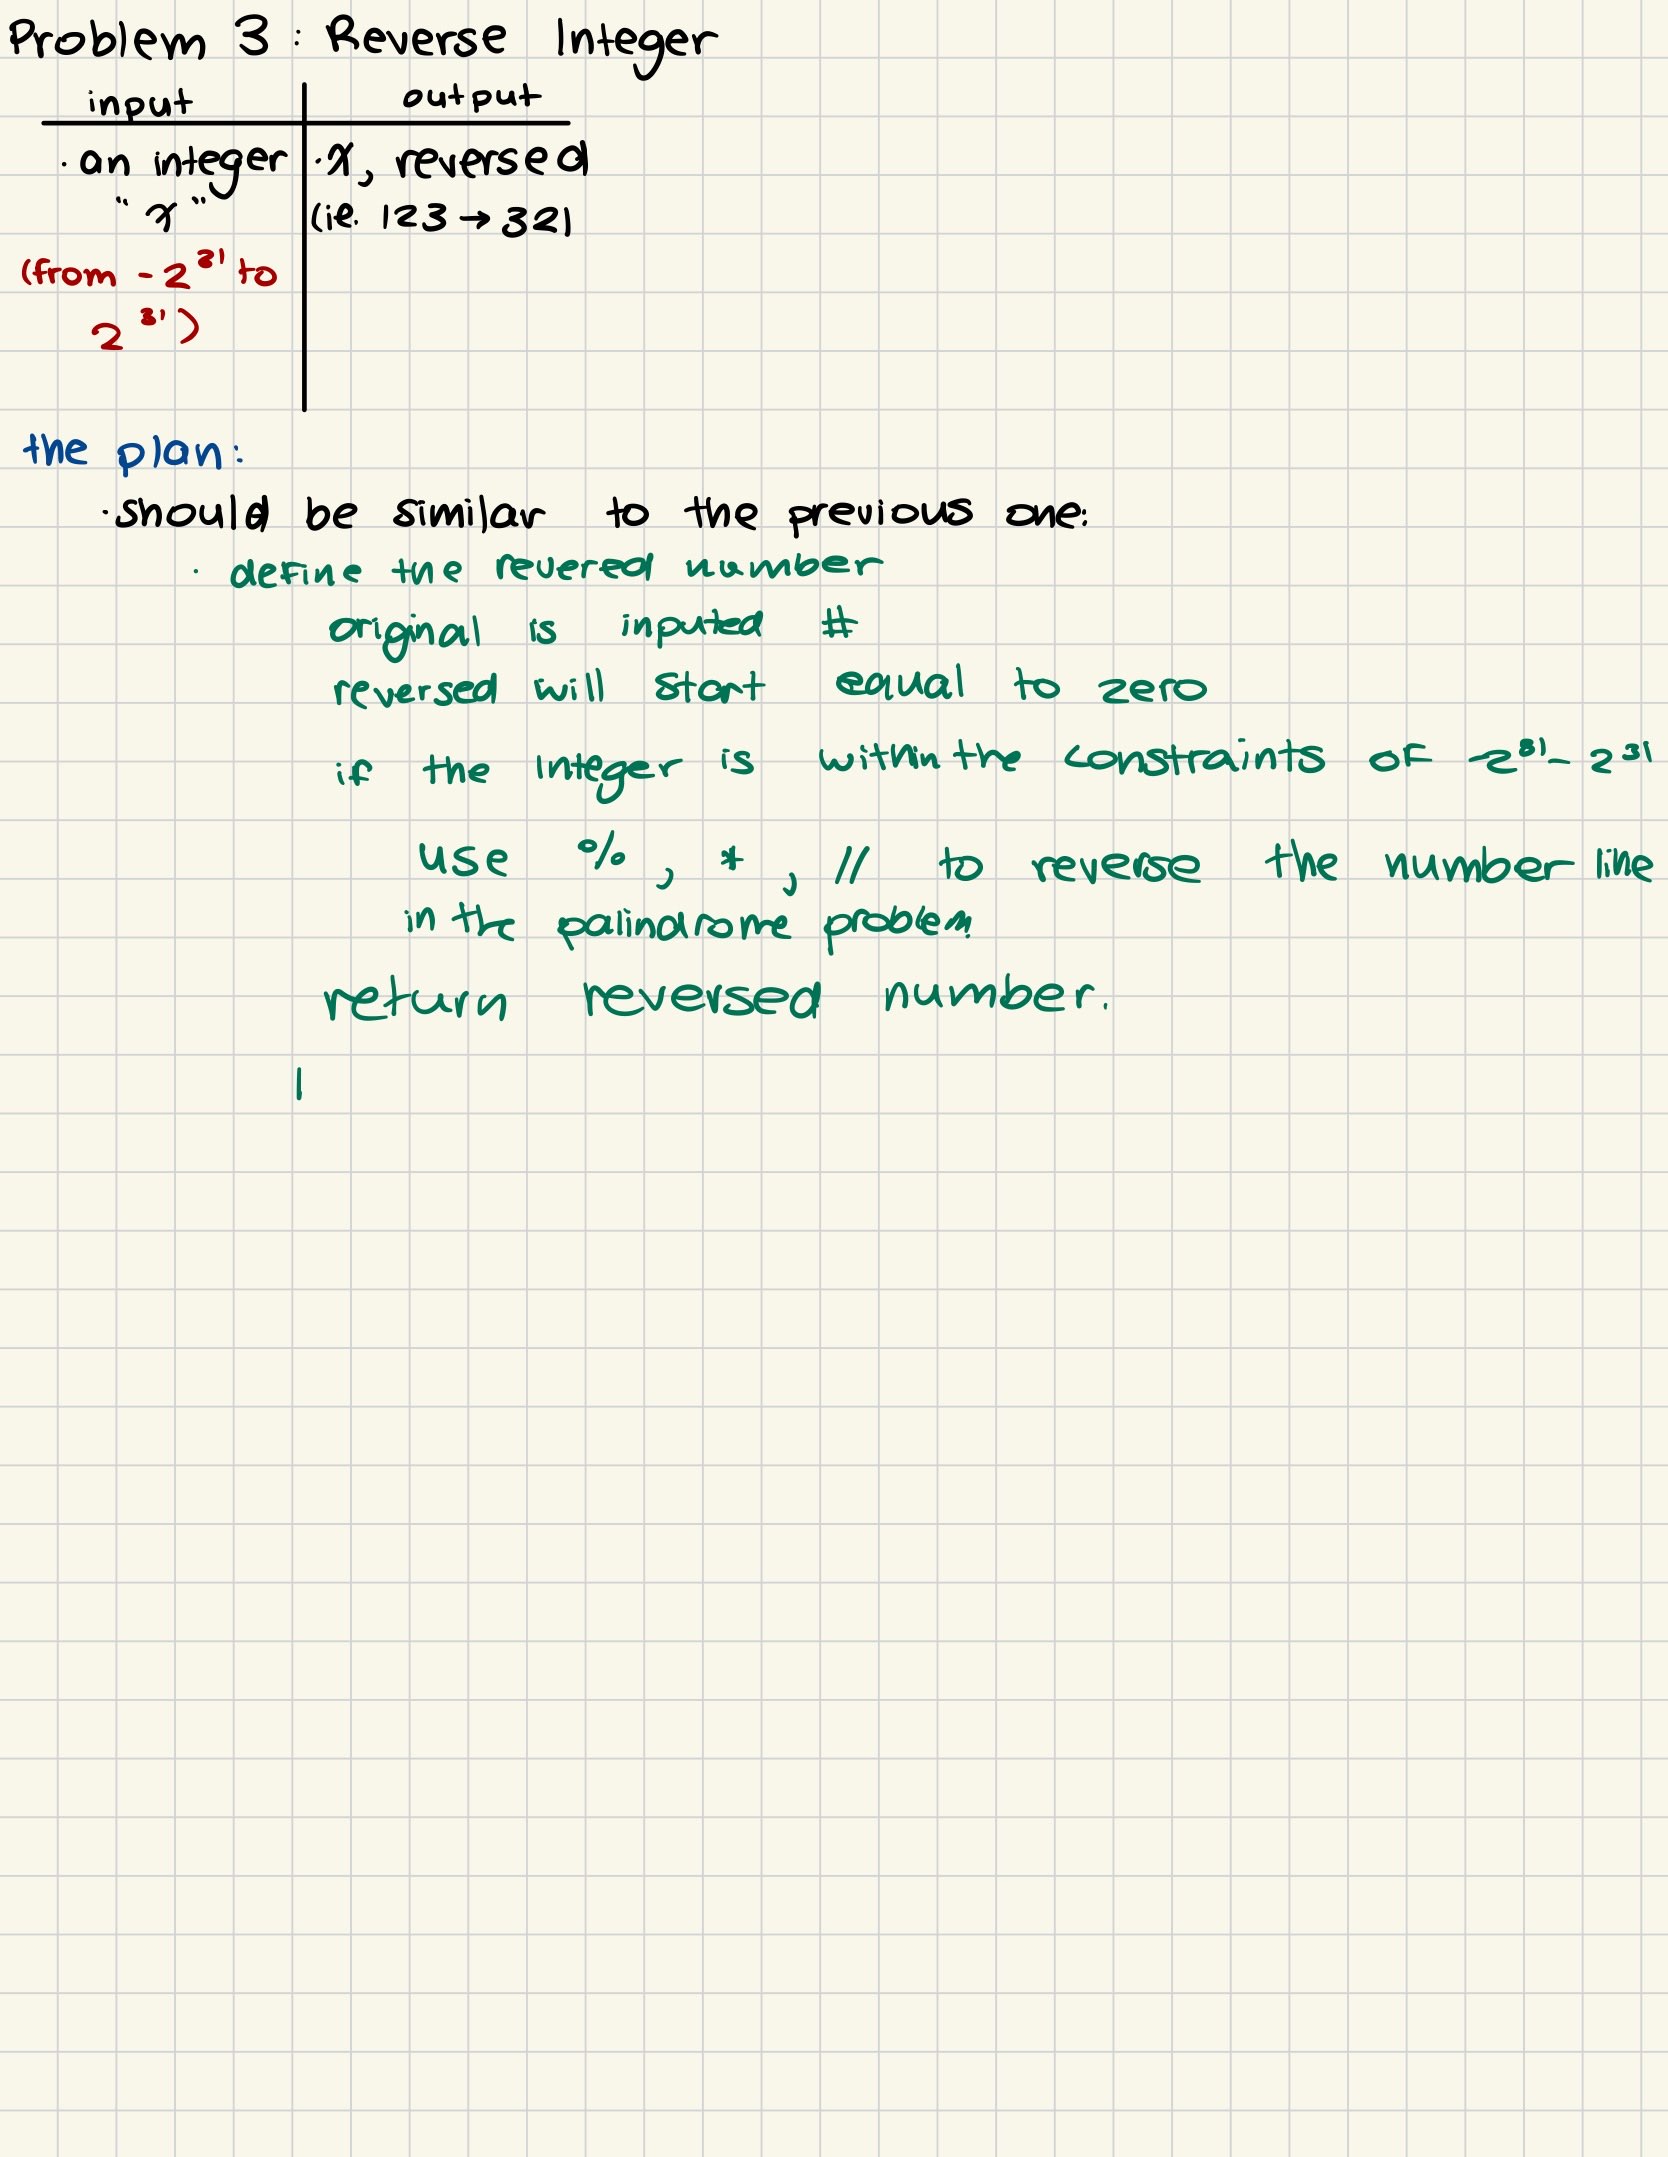 Problem 3 : Reverse Integer
input output
· an integer · x, reversed
"x" (ie. 123 → 321
(from -2³¹ to
2³¹)
the plan:
· should be similar to the previous one:
· define the revered number
original is inputed #
reversed will start equal to zero
if the integer is within the constraints of -2³¹ - 2³¹
use %, *, // to reverse the number line
in the palindrome problem
return reversed number.